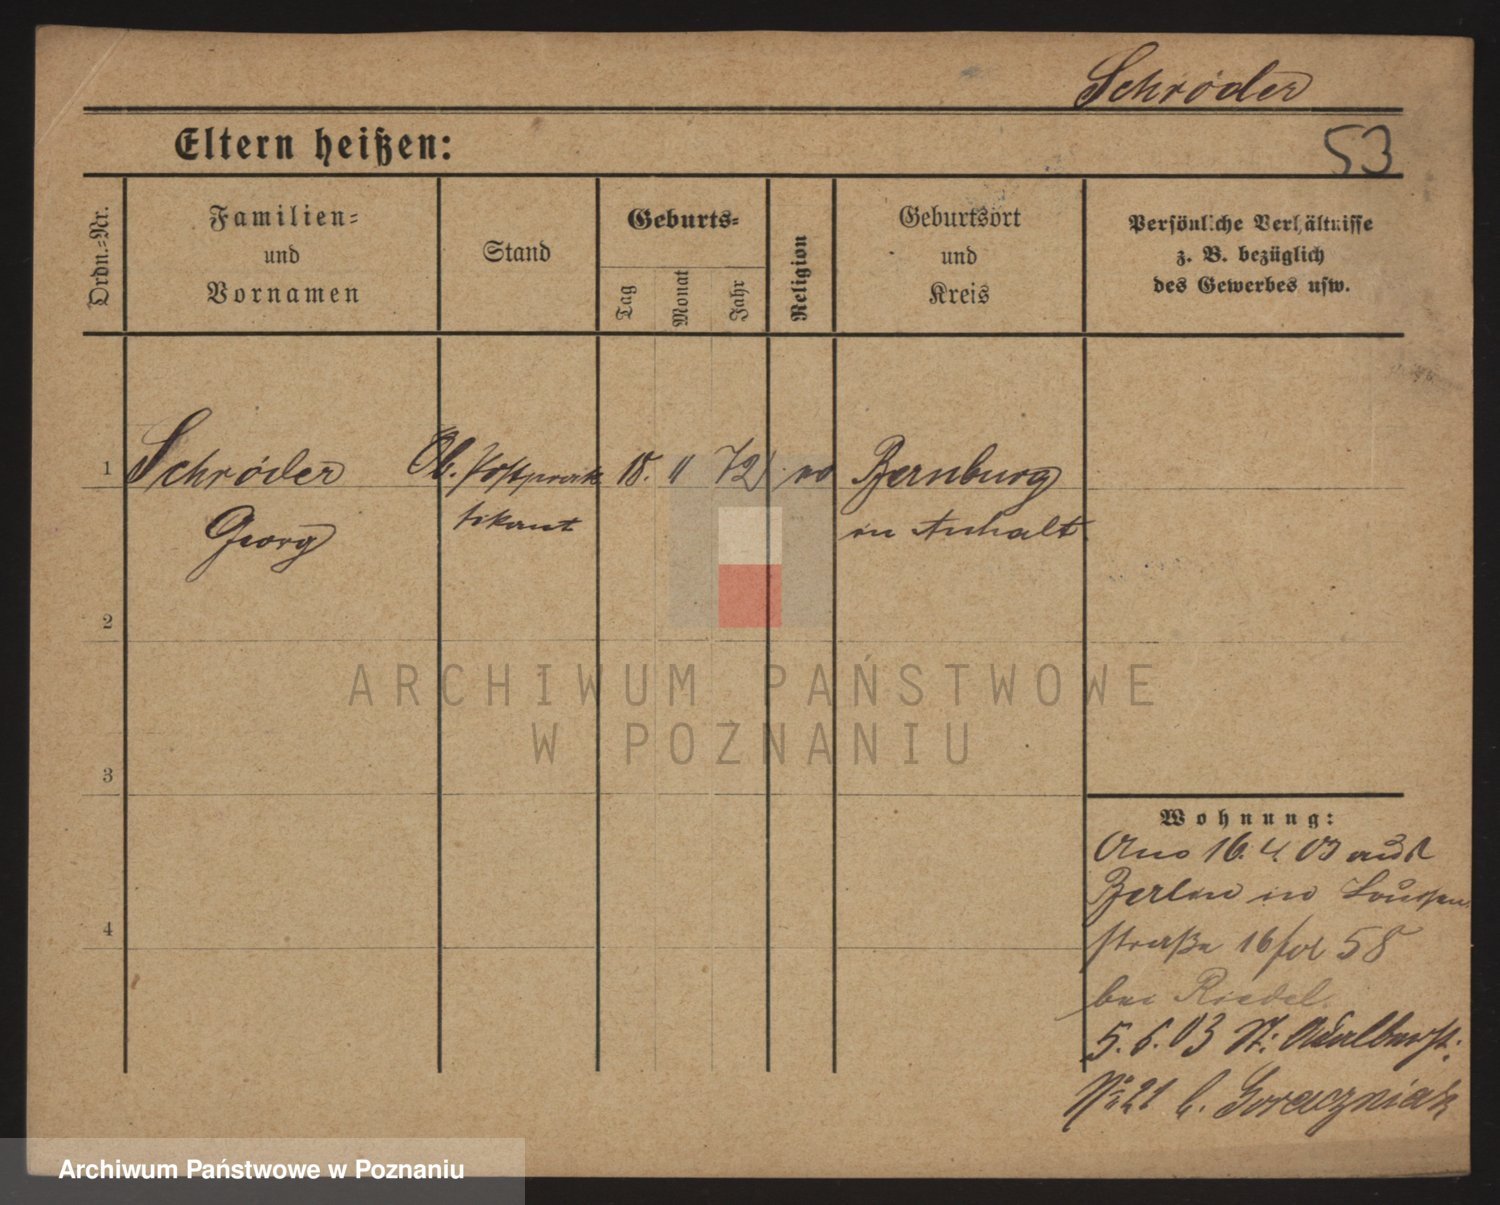 Schröder
53
Eltern heißen:
Ordn.-Nr.
Familien-
und
Vornamen
Stand
Geburts-
Tag
Monat
Jahr
Religion
Geburtsort
und
Kreis
Persönliche Verhältnisse
z. B. bezüglich
des Gewerbes usw.
1 Schröder Ob. Postprak 18. 11 72 Bernburg
Georg tikant in Anhalt
2
3
4
ARCHIWUM PAŃSTWOWE
W POZNANIU
Wohnung:
16. 4. 03 aus
Berlin in Louisen
straße 16 fol 58
bei Riedel.
5. 6. 03 St: Adalbertst:
No 21 b. Goraczniak
Archiwum Państwowe w Poznaniu